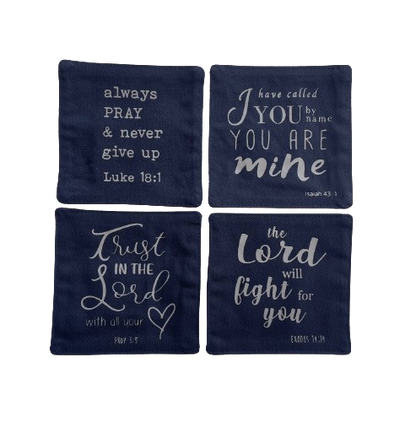 always
PRAY
& never
give up
Luke 18:1
I have called
YOU by
name
YOU ARE
mine
Isaiah 43:1
Trust
IN THE
Lord
with all your
PROV 3:5
the
Lord
will
fight for
you
EXODUS 14:14